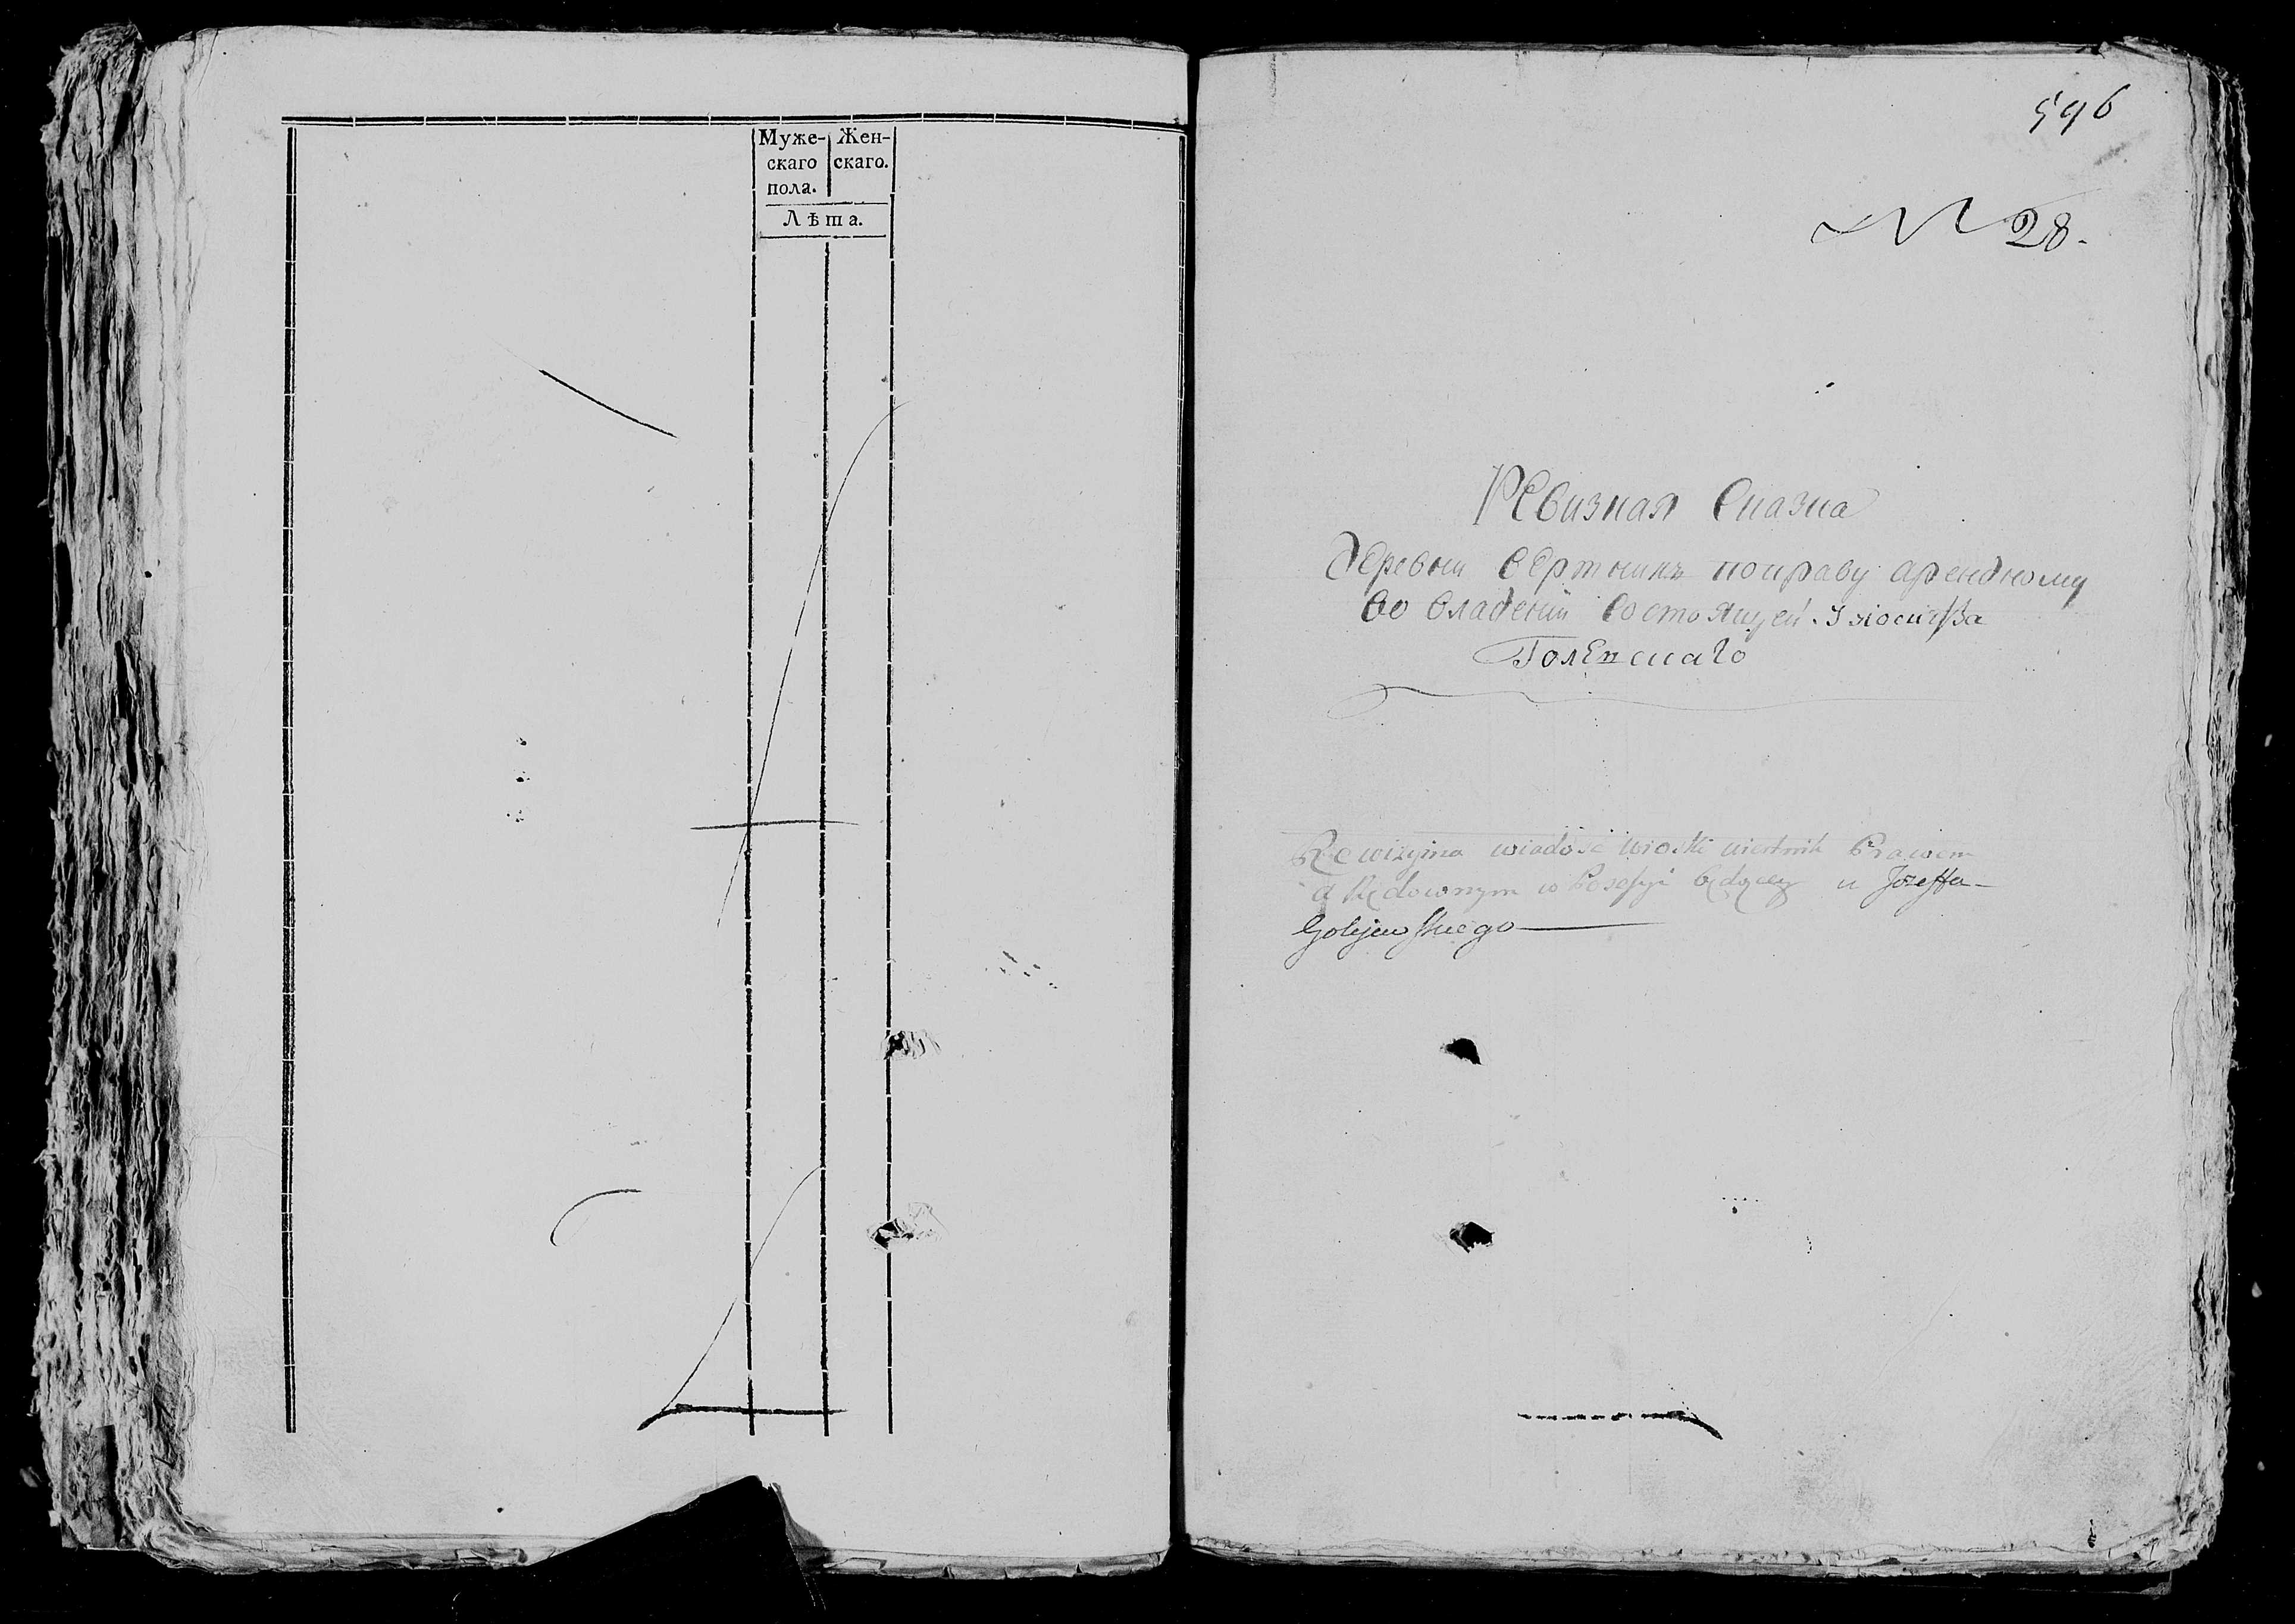 Муже- Жен-
скаго скаго.
пола.
Лѣта.
596
№ 28.
Ревизная Сказка
деревни Вертникъ поправу арендному
во владении Состоящей Уиосифа
Голевскаго
Rewizyina wiadość wioski wiertnik Prawem
arędownym w Posesyi będącey u Jozeffa
Golejewskiego